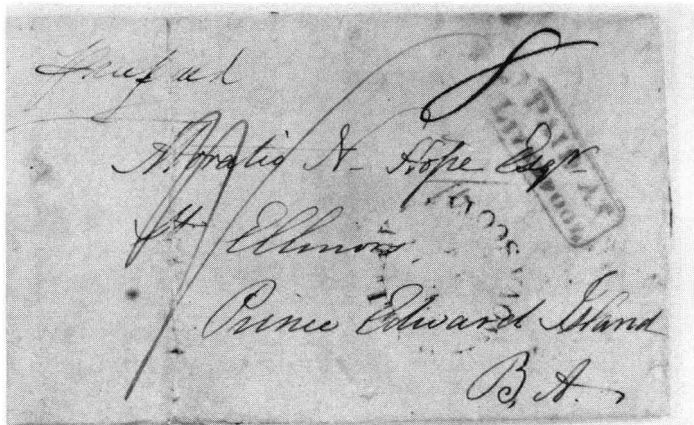 8
PAID AT
LIVERPOOL
Horatio N. Hope Esqr.
Ellinois,
Prince Edward Island
B. A.